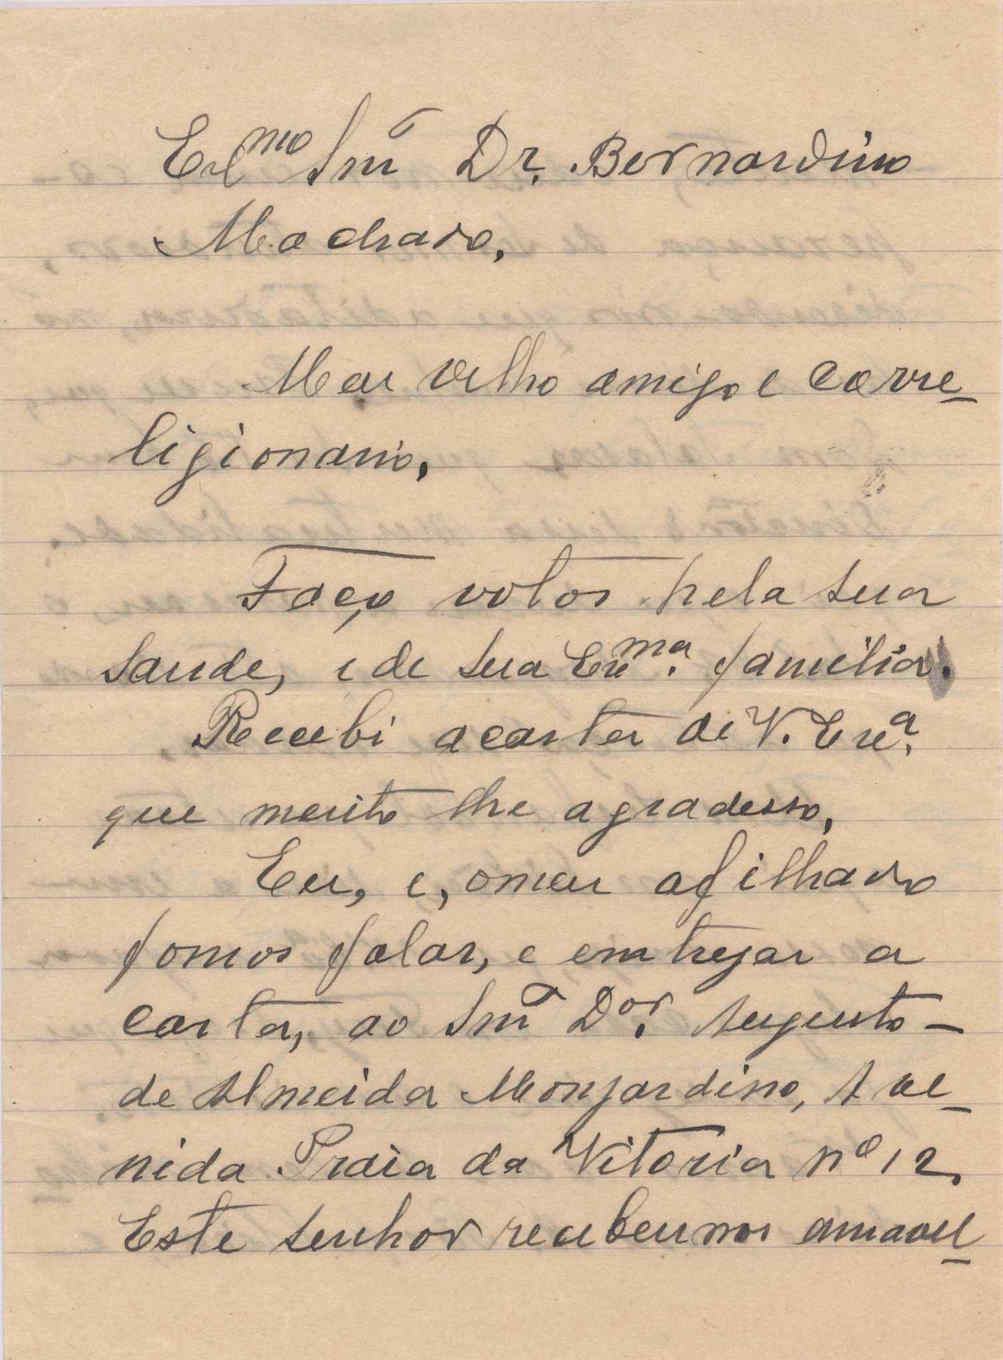 Exmo Snr Dr. Bernardino
Machado,
Meu velho amigo e corre-
ligionario,
Faço votos pela sua
saude, e de sua Exma. familia.
Recebi a carta de V. Exa.
que muito lhe agradesso,
Eu, e, o meu afilhado
fomos falar, e emtregar a
carta, ao Snr Dor. Augusto-
de Almeida Monjardino, Ave-
nida Praia da Vitoria nº 12.
Este senhor recebeu nos amavel-